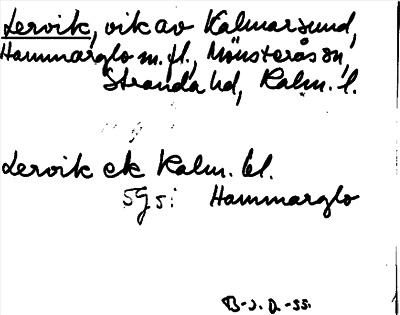 Lervik, vik av Kalmarsund,
Hammarglo m. fl., Mönsterås sn,
Stranda hd, Kalm. l.
Lervik ek Kalm. bl.
5g 5: Hammarglo
B-J. D. -55.